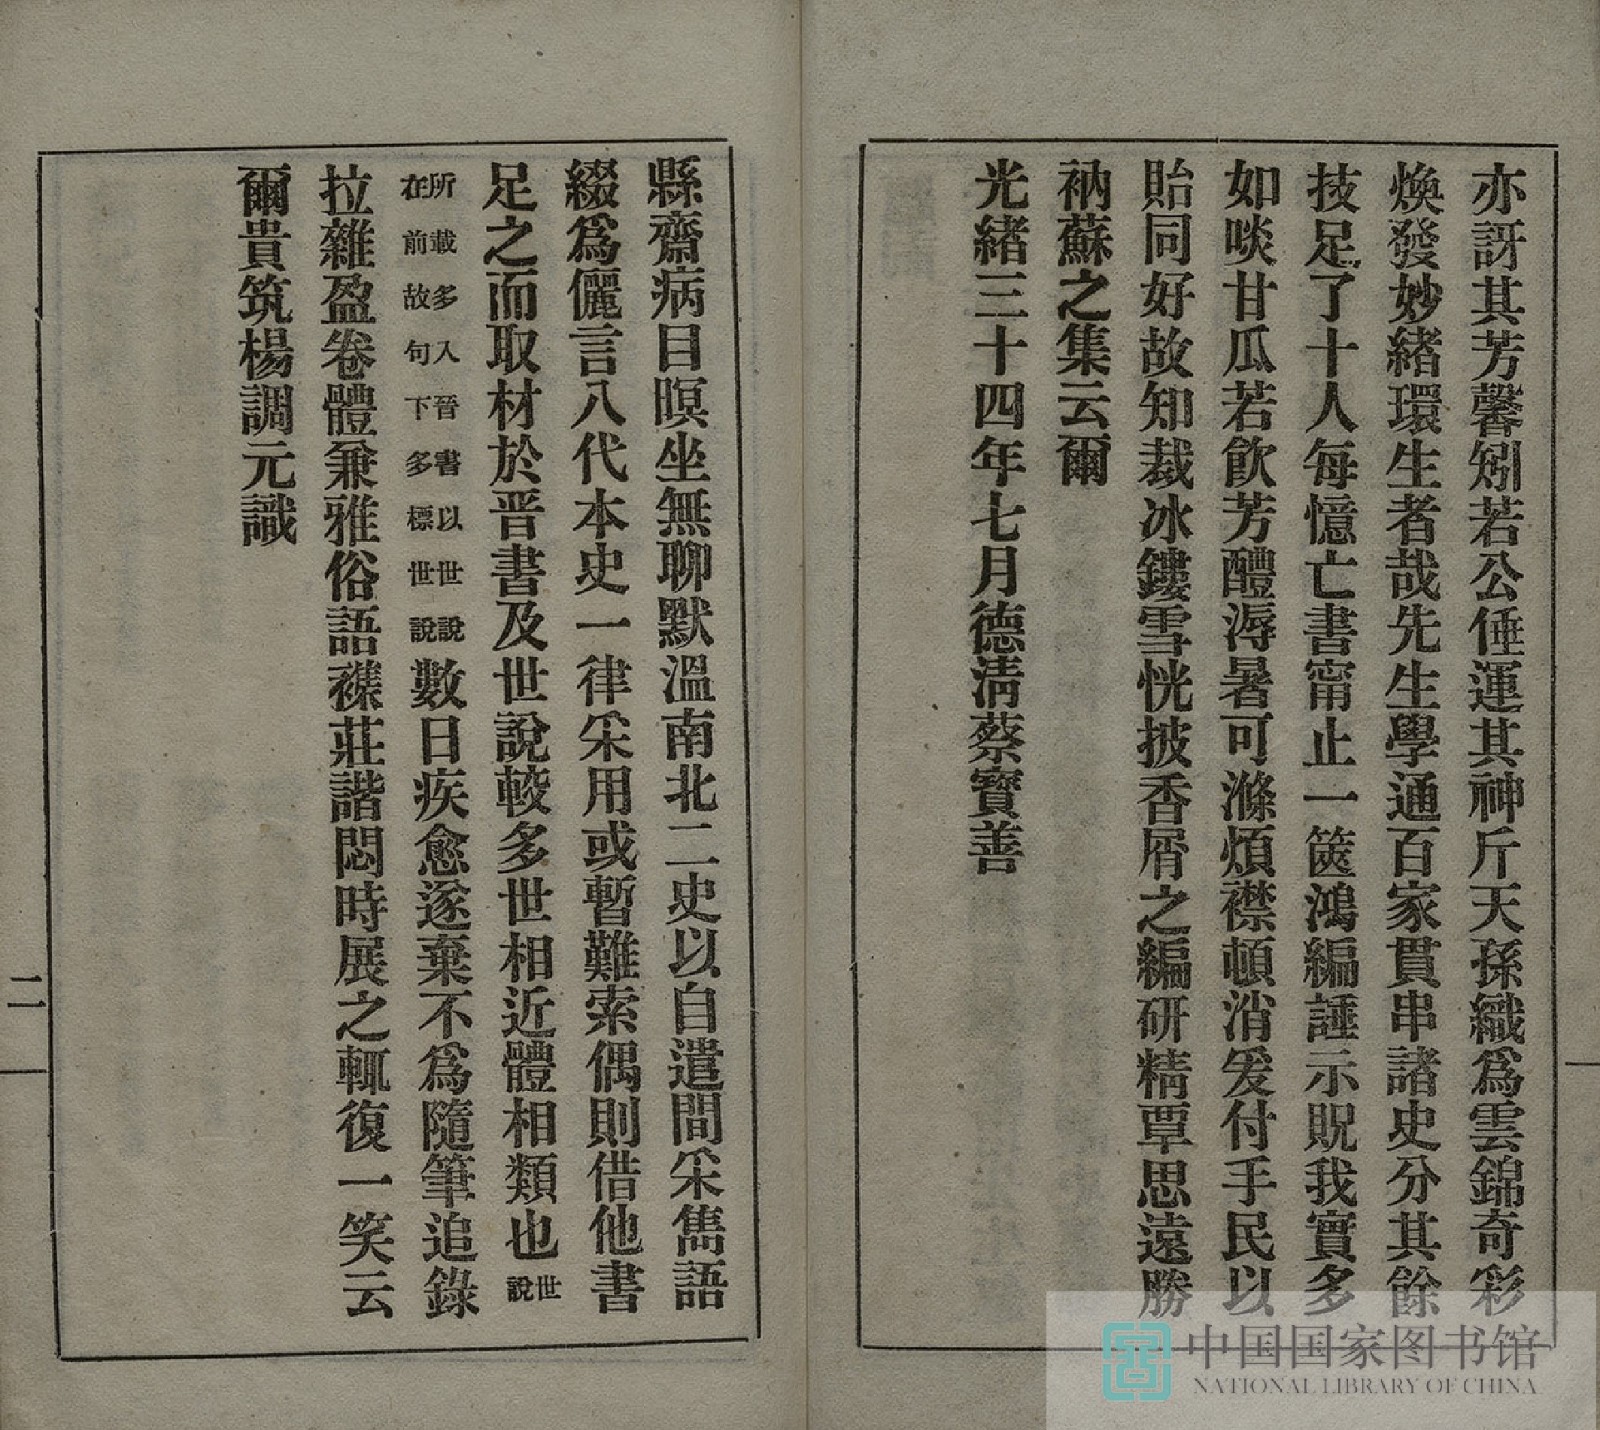 亦訝其芳馨矧若公倕運其神斤天孫織爲雲錦奇彩
煥發妙緒環生者哉先生學通百家貫串諸史分其餘
技足了十人每憶亡書甯止一篋鴻編諈示貺我實多
如啖甘瓜若飮芳醴溽暑可滌煩襟頓消爰付手民以
貽同好故知裁冰鏤雪恍披香屑之編硏精覃思遠勝
衲蘇之集云爾
光緒三十四年七月德淸蔡寶善
縣齋病目瞑坐無聊默溫南北二史以自遣間采雋語
綴爲儷言八代本史一律采用或暫難索偶則借他書
足之而取材於晋書及世說較多世相近體相類也世說
所載多入晉書以世說在前故句下多標世說數日疾愈遂棄不爲隨筆追錄
拉雜盈卷體兼雅俗語襍莊諧悶時展之輒復一笑云
爾貴筑楊調元識
二
中国国家图书馆
NATIONAL LIBRARY OF CHINA